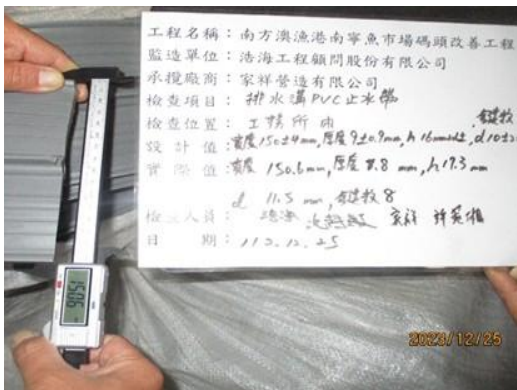 工程名稱：南方澳漁港南寧魚市場碼頭改善工程
監造單位：浩海工程顧問股份有限公司
承攬廠商：家祥營造有限公司
檢查項目：排水溝PVC止水帶
檢查位置：工務所內
設計值：寬度150±4mm,厚度9±0.9mm,h16mm以上,d10±2
鍵數
實際值：寬度 150.6mm,厚度 8.8mm,h17.3mm
d 11.5mm,鍵數8
人員：浩海 家祥
日期：112.12.25
150.6
2023/12/25